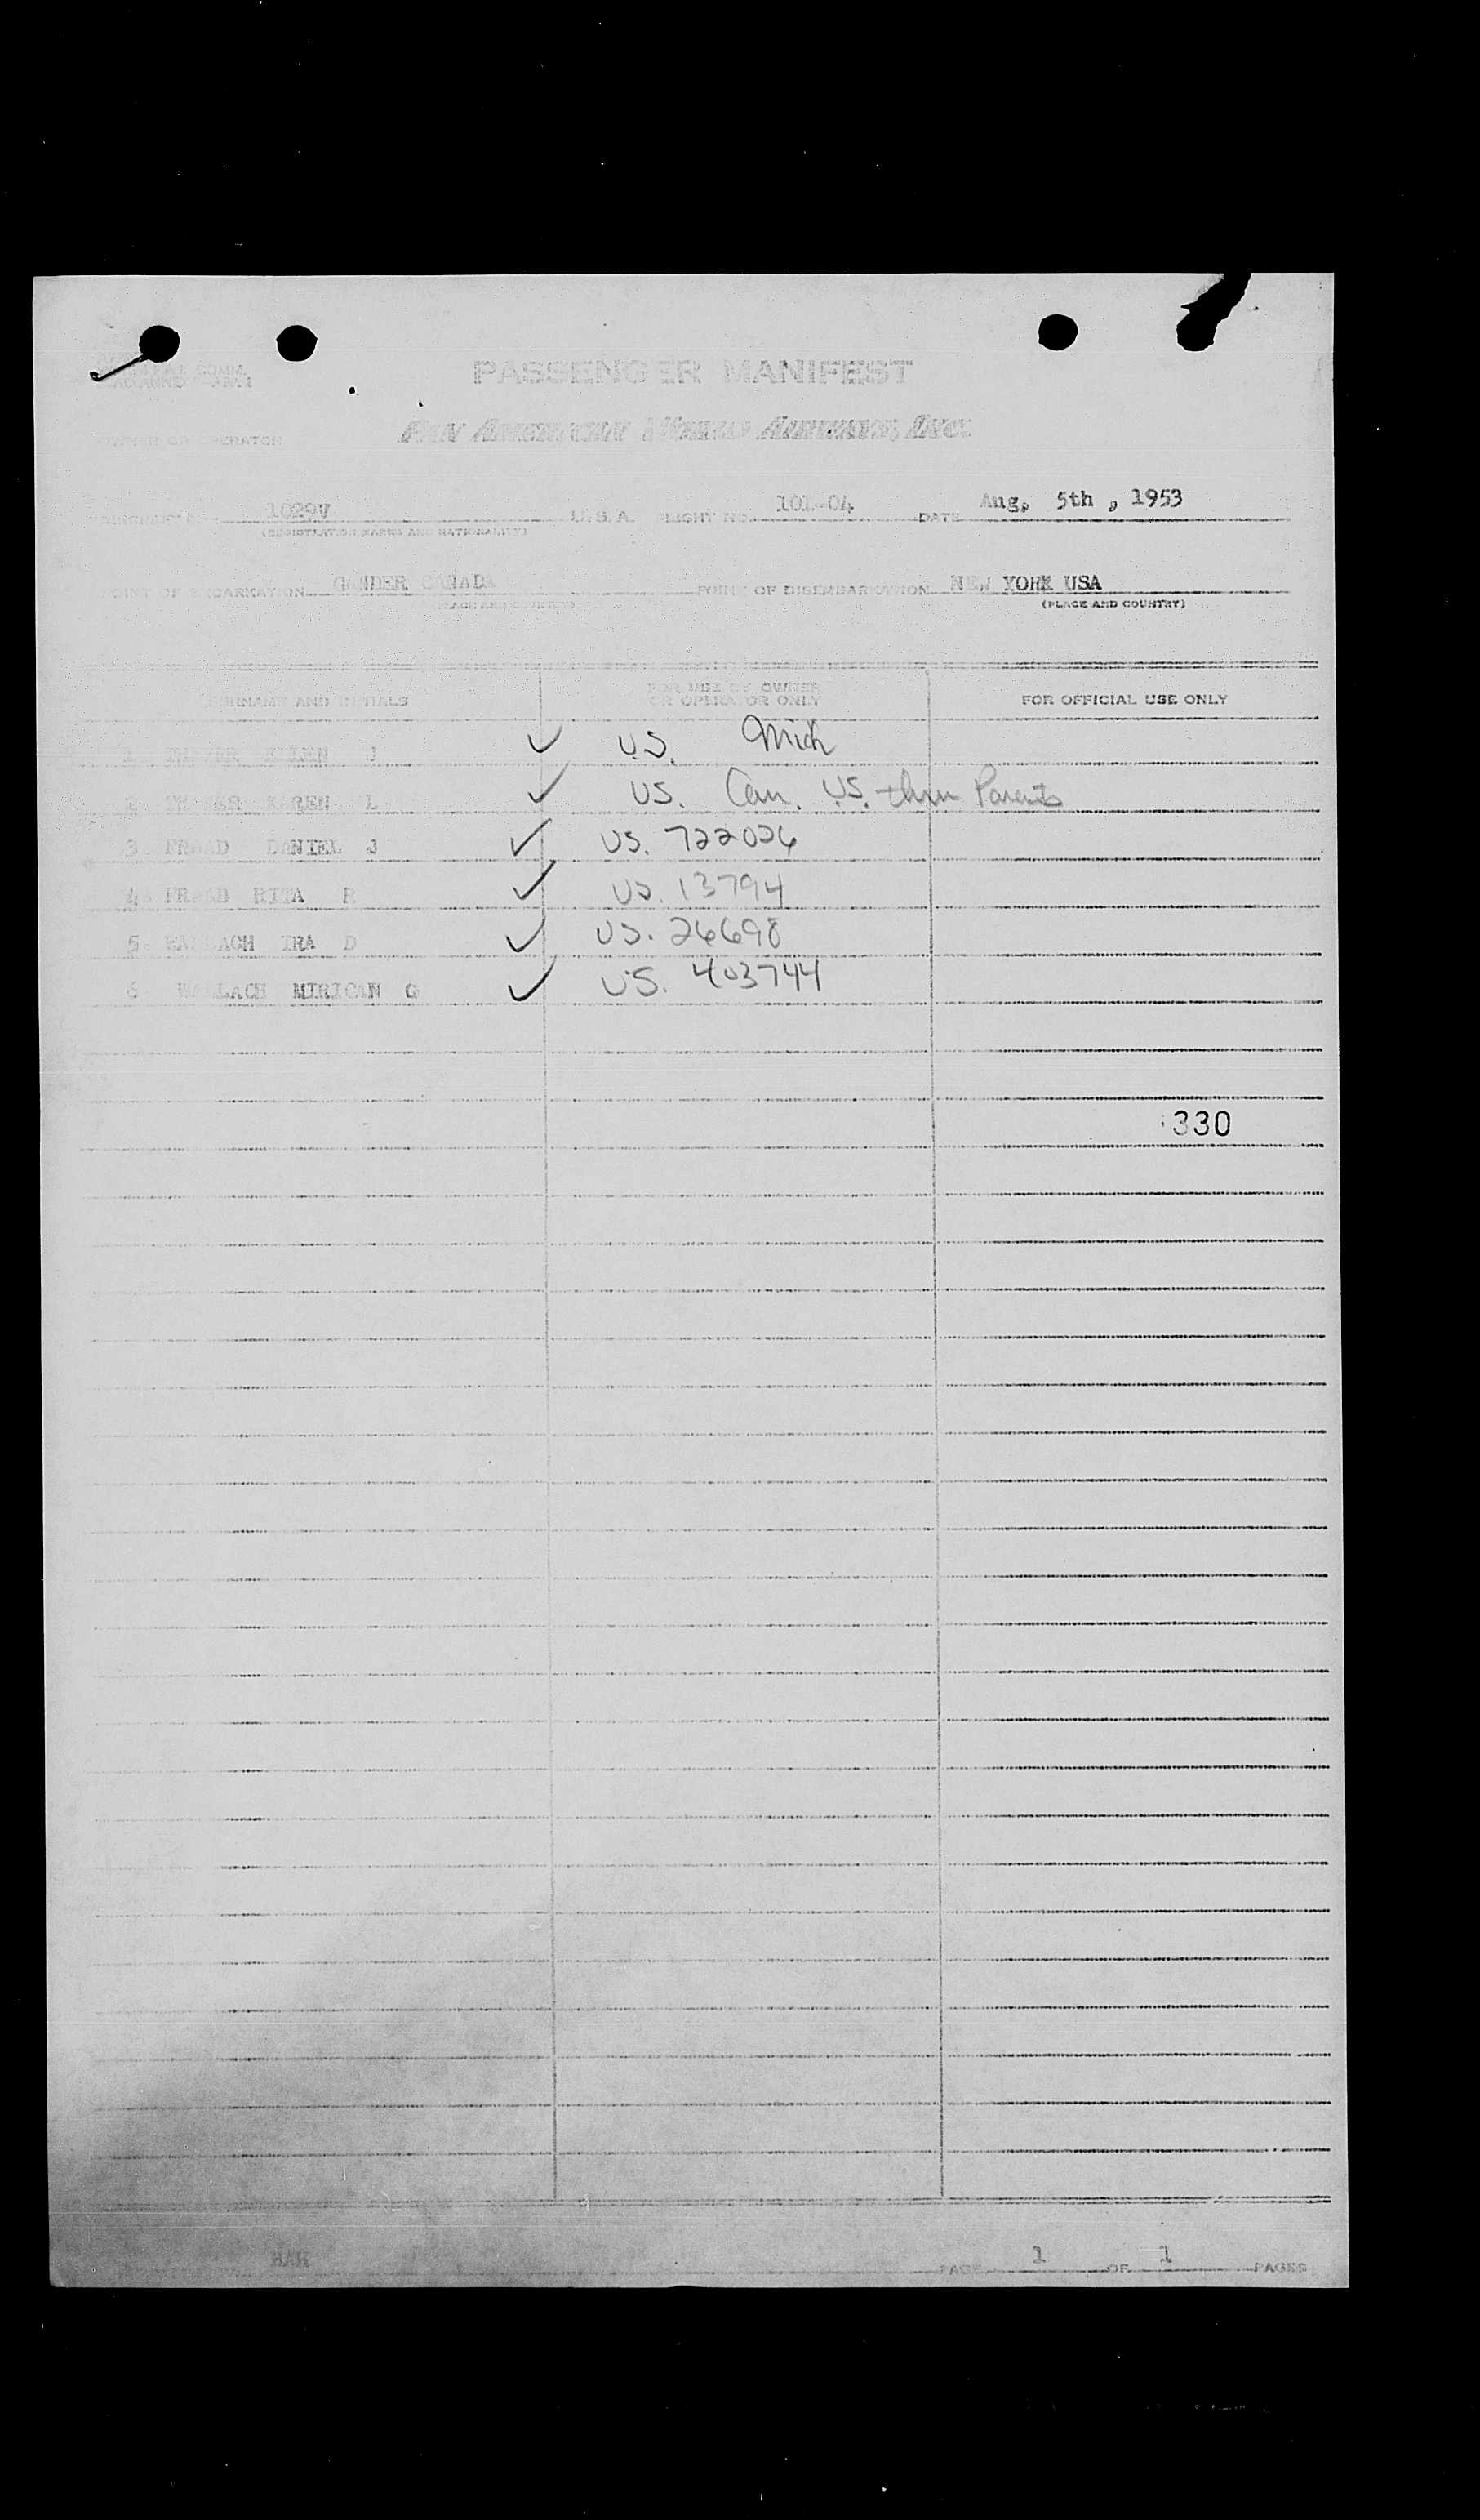 PASSENGER MANIFEST
PAN AMERICAN WORLD AIRWAYS, INC.
OWNER OR OPERATOR
1029V U.S.A. FLIGHT NO. 101-04 DATE Aug, 5th , 1953
(REGISTRATION MARKS AND NATIONALITY)
POINT OF EMBARKATION GANDER CANADA POINT OF DISEMBARKATION NEW YORK USA
(PLACE AND COUNTRY) (PLACE AND COUNTRY)
SURNAME AND INITIALS FOR USE BY OWNER OR OPERATOR ONLY FOR OFFICIAL USE ONLY
1 ELLEN J ✓ U.S. Mich
2 KAREN L ✓ US. Can. U.S. thru Parents
3 FRAAD DANIEL J ✓ US. 722026
4 FRAAD RITA R ✓ US. 13794
5 WALLACH IRA D ✓ US. 26698
6 WALLACH MIRICAN G ✓ US. 403744
330
HAH PAGE 1 OF 1 PAGES